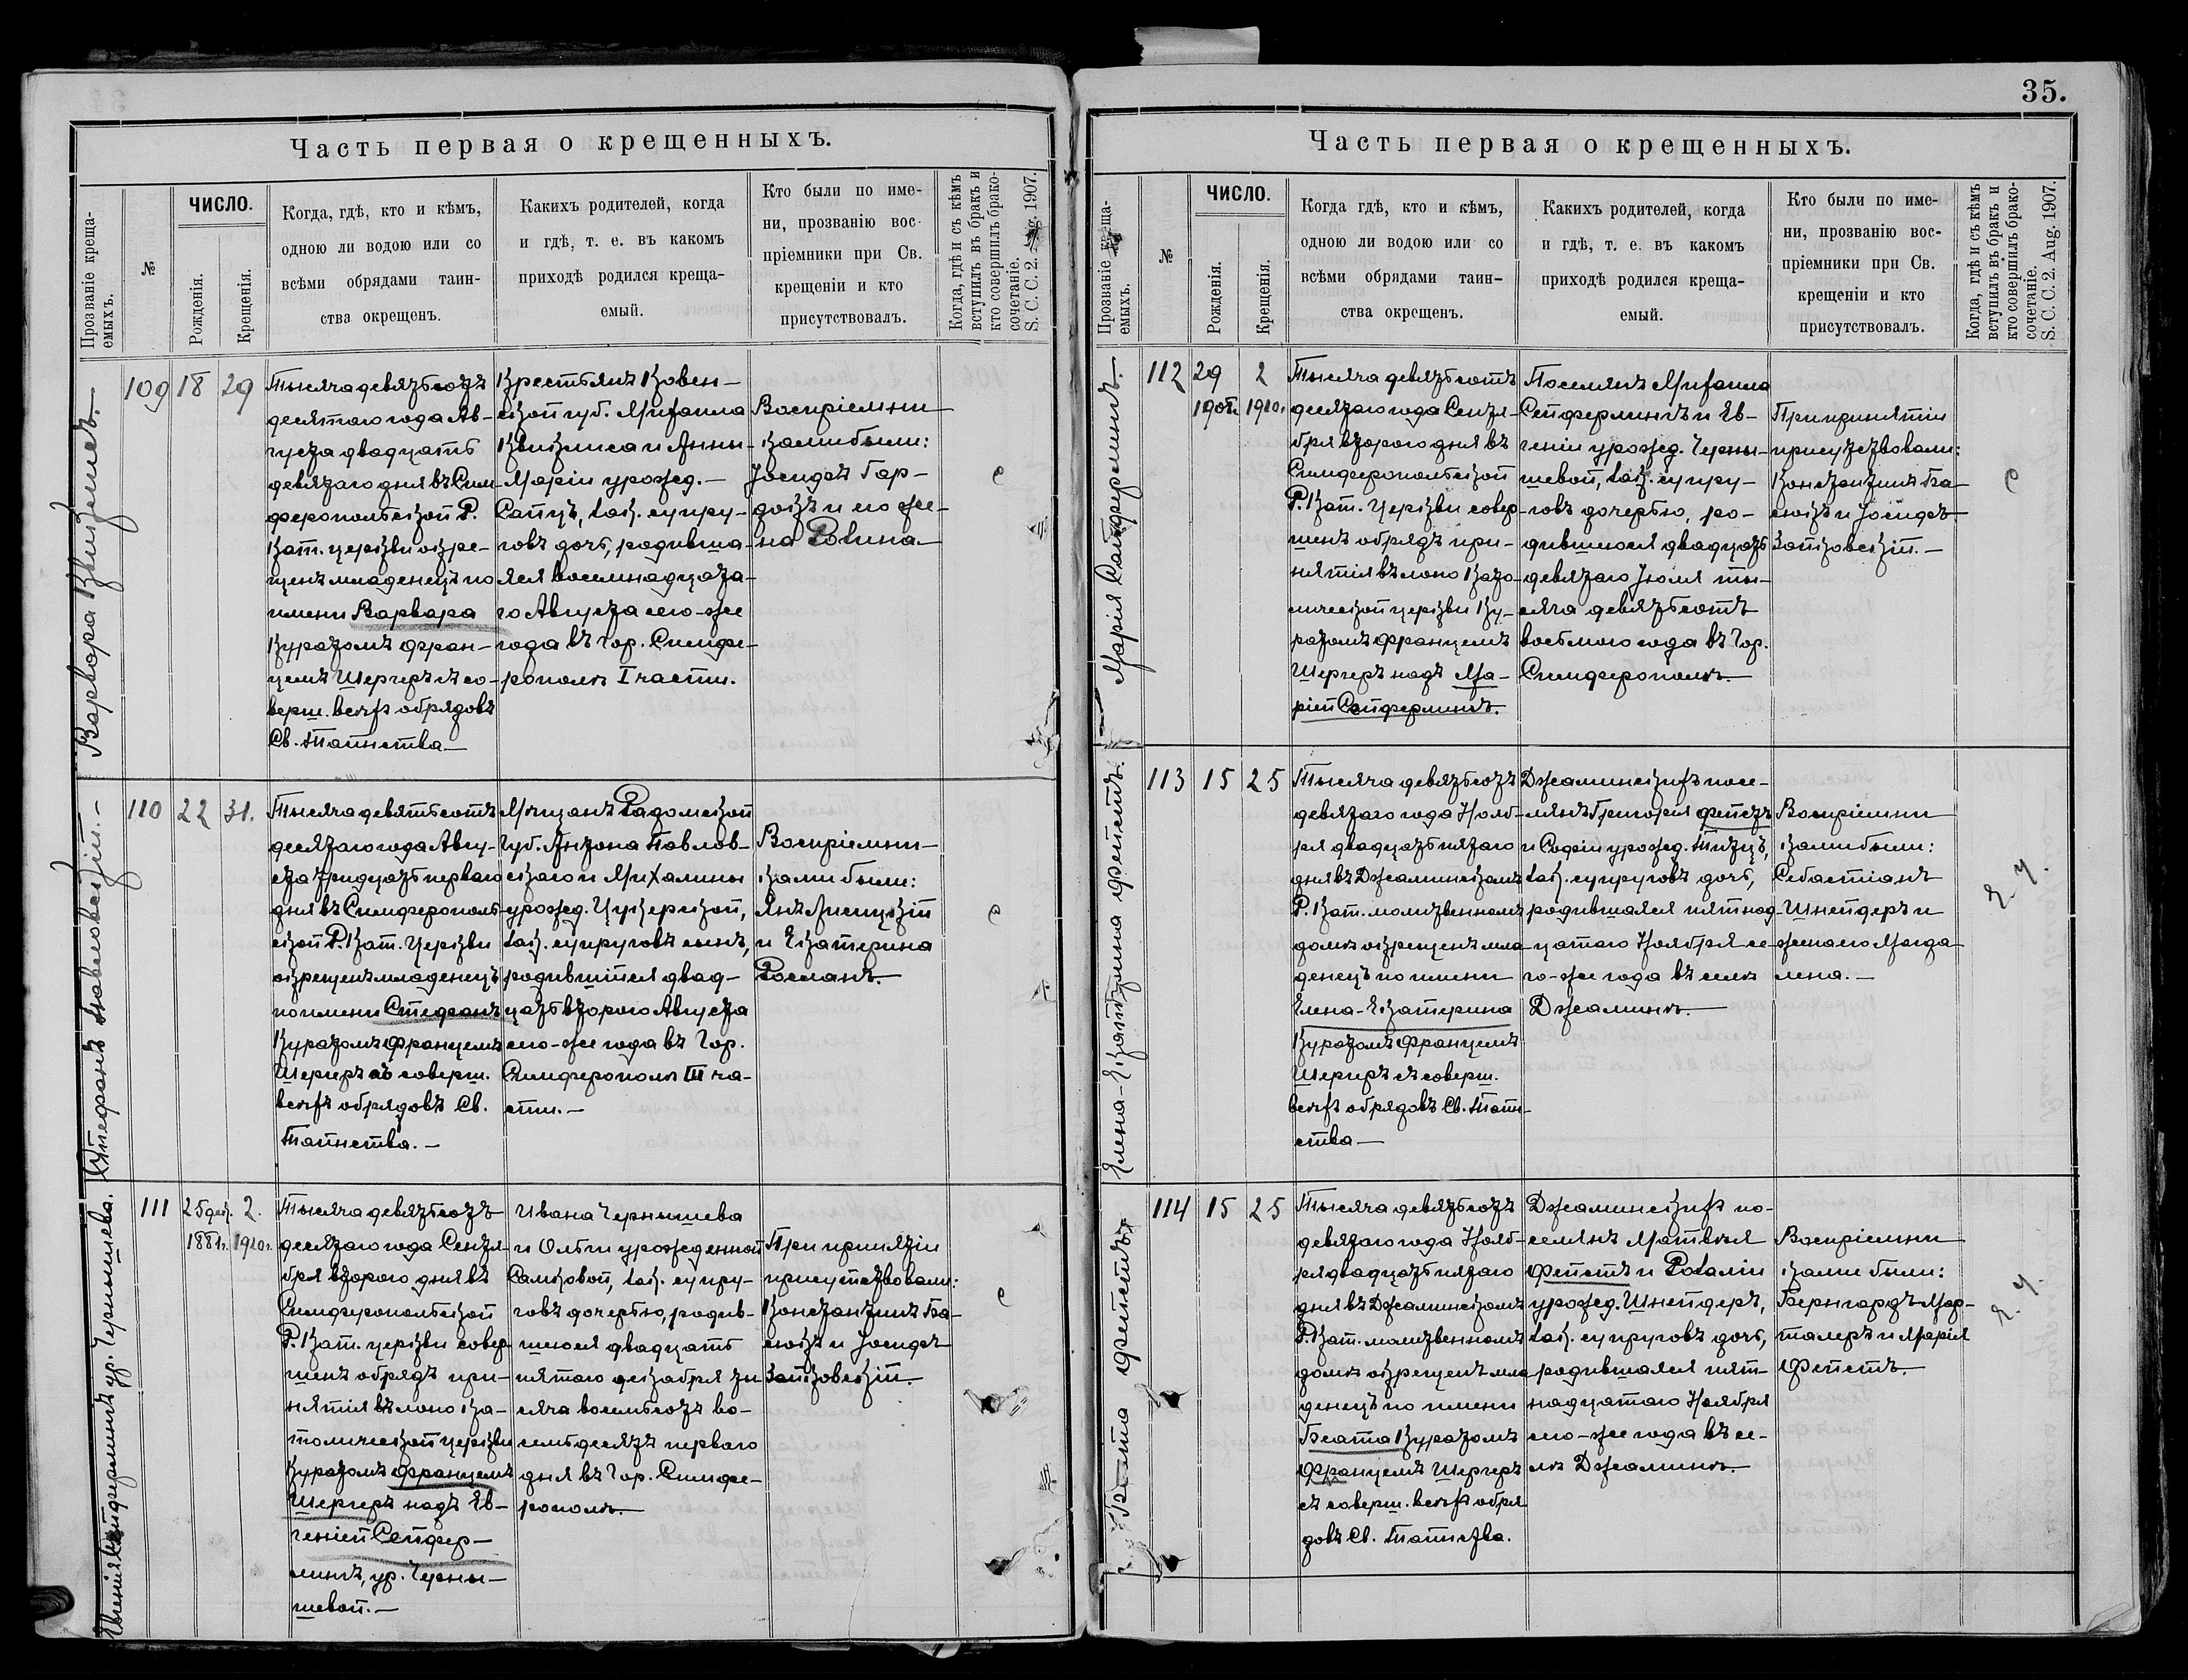 Часть первая о крещенныхъ.
Прозваніе креща-
емыхъ.
№
ЧИСЛО.
Рожденія.
Крещенія.
Когда, гдѣ, кто и кѣмъ,
одною ли водою или со
всѣми обрядами таин-
ства окрещенъ.
Какихъ родителей, когда
и гдѣ, т. е. въ какомъ
приходѣ родился креща-
емый.
Кто были по име-
ни, прозванію вос-
пріемники при Св.
крещеніи и кто
присутствовалъ.
Когда, гдѣ и съ кѣмъ
вступилъ въ бракъ и
кто совершилъ брако-
сочетаніе.
S. C. C. 2. Aug. 1907.
Варвара
109 18 29
Тысяча девятьсотъ
десятаго года Ав-
густа двадцать
девятаго дня въ Сим-
феропольской Р.
Кат. церкви окре-
щенъ младенецъ по
имени Варвара
Куратомъ Фран-
цемъ Шергеръ съ со-
верш. всѣхъ обрядовъ
Св. Таинства.—
Крестьянъ Ковен-
ской губ. Михаила
и Анны-
Маріи урожд.—
зак. супру-
говъ дочь, родивша-
яся восемнадцата-
го Августа сего-же
года въ гор. Симфе-
рополѣ I части.
Воспріемни-
ками были:
Іосифъ Гар-
и его же-
на
110 22 31.
Стефанъ Павловскій.—
Тысяча девятьсотъ
десятаго года Авгу-
ста тридцать перваго
дня въ Симферополь-
ской Р. Кат. Церкви
окрещенъ младенецъ
по имени Стефанъ
Куратомъ Францемъ
Шергеръ съ соверш.
всѣхъ обрядовъ Св.
Таинства.—
Мѣщанъ Радомской
Губ. Антона Павлов-
скаго и Михалины
урожд. Цукерской,
зак. супруговъ сынъ,
родившійся двад-
цать второго Августа
сего-же года въ Гор.
Симферополѣ III ча-
сти.—
Воспріемни-
ками были:
Янъ
и Екатерина
Росланъ.
Евгенія Сейферлингъ ур. Чернышева.
111 25 дек. 2.
1881г. 1910г.
Тысяча девятьсотъ
десятаго года Сентя-
бря второго дня въ
Симферопольской
Р. Кат. церкви совер-
шенъ обрядъ при-
нятія въ лоно Ка-
толической церкви
Куратомъ Францемъ
Шергеръ надъ Ев-
геніей Сейфер-
лингъ, ур. Черны-
шевой.—
Ивана Чернышева
и Ольги урожденной
Самковой, зак. супру-
говъ дочерью, родив-
шеюся двадцать
пятаго декабря ты
сяча восемьсотъ во-
семьдесятъ перваго
дня въ Гор. Симфе-
рополѣ.—
При принятіи
присутствовали:
Константинъ Ба-
и Іосифъ
Зайковскій.—
35.
Часть первая о крещенныхъ.
Прозваніе креща-
емыхъ.
№
ЧИСЛО.
Рожденія.
Крещенія.
Когда гдѣ, кто и кѣмъ,
одною ли водою или со
всѣми обрядами таин-
ства окрещенъ.
Какихъ родителей, когда
и гдѣ, т. е. въ какомъ
приходѣ родился креща-
емый.
Кто были по име-
ни, прозванію вос-
пріемники при Св.
крещеніи и кто
присутствовалъ.
Когда, гдѣ и съ кѣмъ
вступилъ въ бракъ и
кто совершилъ брако-
сочетаніе.
S. C. C. 2. Aug. 1907.
Марія Сейферлингъ.—
112 29 2
1908г. 1910г.
Тысяча девятьсотъ
десятаго года Сентя-
бря второго дня въ
Симферопольской
Р. Кат. Церкви совер-
шенъ обрядъ при-
нятія въ лоно Като-
лической церкви Ку-
ратомъ Францемъ
Шергеръ надъ Ма-
ріей Сейферлингъ.
Поселянъ Михаила
Сейферлингъ и Ев-
геніи урожд. Черны-
шевой, зак. супру-
говъ дочерью, ро-
дившеюся двадцать
девятаго Іюля ты-
сяча девятьсотъ
восьмого года въ Гор.
Симферополѣ.—
При принятіи
присутствовали:
Константинъ Ба-
и Іосифъ
Зайковскій.—
Елена-Екатерина Фейстъ.
113 15 25
Тысяча девятьсотъ
девятаго года Нояб-
ря двадцать пятаго
дня въ Джаминскомъ
Р. Кат. молитвенномъ
домѣ окрещенъ мла-
денецъ по имени
Елена-Екатерина
Куратомъ Францемъ
Шергеръ съ соверш.
всѣхъ обрядовъ Св. Таин-
ства—
Джаминскихъ посе-
лянъ Григорія Фейстъ
и Софіи урожд.
зак. супруговъ дочь,
родившаяся пятнад-
цатаго Ноября се-
го-же года въ селѣ
Джаминъ.—
Воспріемни
ками были:
Себастіанъ
Шнейдеръ и
жена его Магда
лена.—
Беата Фейстъ.
114 15 25
Тысяча девятьсотъ
девятаго года Нояб-
ря двадцать пятаго
дня въ Джаминскомъ
Р. Кат. молитвенномъ
домѣ окрещенъ мла-
денецъ по имени
Беата Куратомъ
Францемъ Шергеръ
съ соверш. всѣхъ обря
довъ Св. Таинства.
Джаминскихъ по-
селянъ Матвѣя
Фейстъ и Розаліи
урожд. Шнейдеръ,
зак. супруговъ дочь,
родившаяся пят-
надцатаго Ноября
сего-же года въ се-
лѣ Джаминъ.—
Воспріемни
ками были:
Бернгардъ Мар-
талеръ и Марія
Фейстъ.